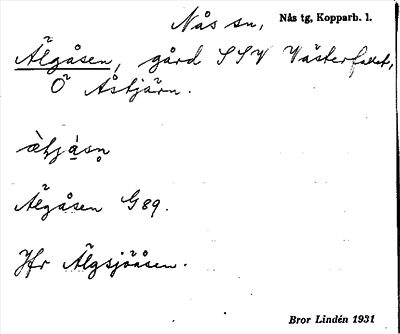 Nås sn, Nås tg, Kopparb. l.
Älgåsen, gård SSV Västerfallet,
Ö Åstjärn.
Älgåsen G89.
Jfr Älgsjöåsen.
Bror Lindén 1931